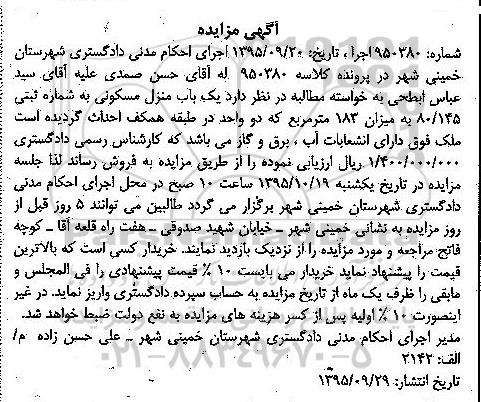 آگهی مزایده
شماره: ۹۵۰۳۸۰اجرا ، تاریخ: ۱۳۹۵/۰۹/۲۰ اجرای احکام مدنی دادگستری شهرستان
خمینی شهر در پرونده کلاسه ۹۵۰۳۸۰ له آقای حسن صمدی علیه آقای سید
عباس ابطحی به خواسته مطالبه در نظر دارد یک باب منزل مسکونی به شماره ثبتی
۸۰/۱۴۵ به میزان ۱۸۳ مترمربع که دو واحد در طبقه همکف احداث گردیده است
ملک فوق دارای انشعابات آب ، برق و گاز می باشد که کارشناس رسمی دادگستری
۱/۴۰۰/۰۰۰/۰۰۰ ریال ارزیابی نموده را از طریق مزایده به فروش رساند لذا جلسه
مزایده در تاریخ یکشنبه ۱۳۹۵/۱۰/۱۹ ساعت ۱۰ صبح در محل اجرای احکام مدنی
دادگستری شهرستان خمینی شهر برگزار می گردد طالبین می توانند ۵ روز قبل از
روز مزایده به نشانی خمینی شهر ـ خیابان شهید صدوقی ـ هفت راه قلعه آقا ـ کوچه
فاتح مراجعه و مورد مزایده را از نزدیک بازدید نمایند. خریدار کسی است که بالاترین
قیمت را پیشنهاد نماید خریدار می بایست ۱۰ ٪ قیمت پیشنهادی را فی المجلس و
مابقی را ظرف یک ماه از تاریخ مزایده به حساب سپرده دادگستری واریز نماید. در غیر
اینصورت ۱۰ ٪ اولیه پس از کسر هزینه های مزایده به نفع دولت ضبط خواهد شد.
مدیر اجرای احکام مدنی دادگستری شهرستان خمینی شهر ـ علی حسن زاده م/
الف: ۲۱۴۲
تاریخ انتشار: ۱۳۹۵/۰۹/۲۹
۰۲۱-۸۸۳۴۹۶۷۰-۵